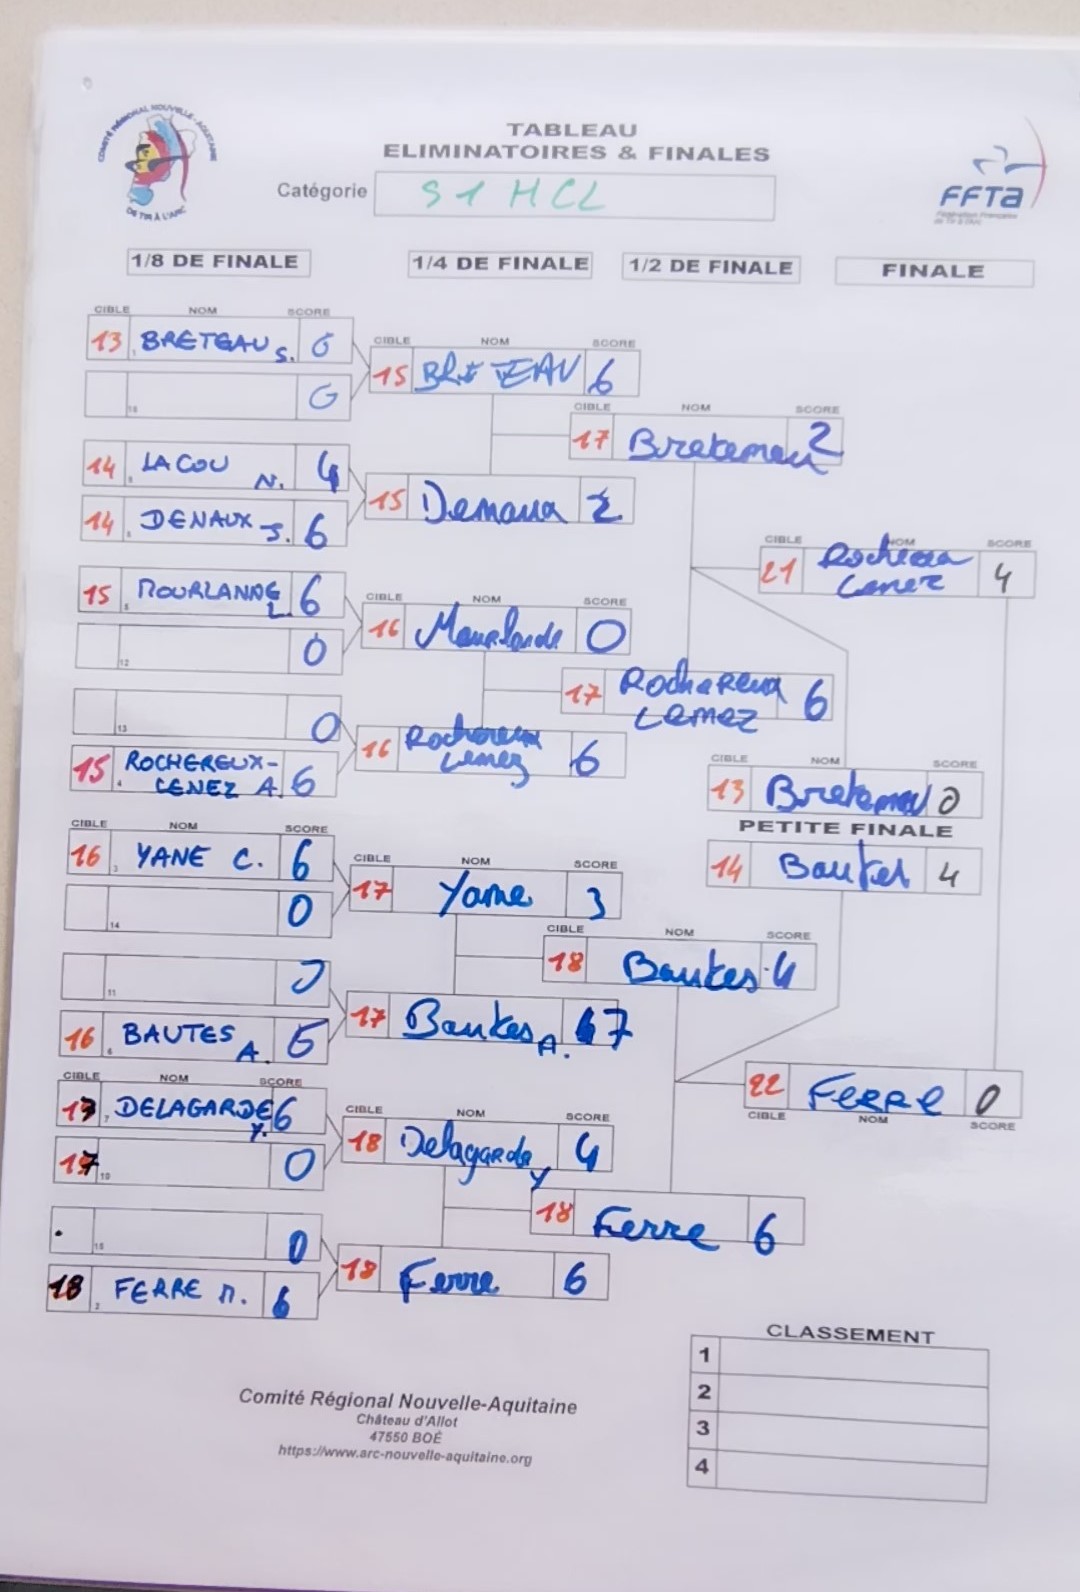 COMITÉ RÉGIONAL NOUVELLE-AQUITAINE
DE TIR À L'ARC
TABLEAU
ELIMINATOIRES & FINALES
Catégorie S1 HCL
FFTA
Fédération Française
de Tir à l'Arc
1/8 DE FINALE 1/4 DE FINALE 1/2 DE FINALE FINALE
CIBLE NOM SCORE
13 1 BRETEAU S. 6
16 0
14 LACOU N. 4
14 DENAUX J. 6
15 5 MOURLANDE L. 6
12 0
13 0
15 4 ROCHEREUX-
LENEZ A. 6
CIBLE NOM SCORE
16 3 YANE C. 6
14 0
11 0
16 6 BAUTES A. 6
CIBLE NOM SCORE
17 7 DELAGARDE Y. 6
17 10 0
15 0
18 2 FERRE M. 6
CIBLE NOM SCORE
15 BRETEAU 6
15 Denaux 2
CIBLE NOM SCORE
16 Mourlande 0
16 Rochereux
Lenez 6
CIBLE NOM SCORE
17 Yane 3
17 Bautes A. 7
CIBLE NOM SCORE
18 Delagarde Y 4
18 Ferre 6
CIBLE NOM SCORE
17 Breteau 2
17 Rochereux
Lenez 6
CIBLE NOM SCORE
18 Bautes 4
18 Ferre 6
CIBLE NOM SCORE
21 Rochereux
Lenez 4
CIBLE NOM SCORE
13 Breteau 0
PETITE FINALE
14 Bautes 4
22 Ferre 0
CIBLE NOM SCORE
CLASSEMENT
1
2
3
4
Comité Régional Nouvelle-Aquitaine
Château d'Allot
47550 BOÉ
https://www.arc-nouvelle-aquitaine.org